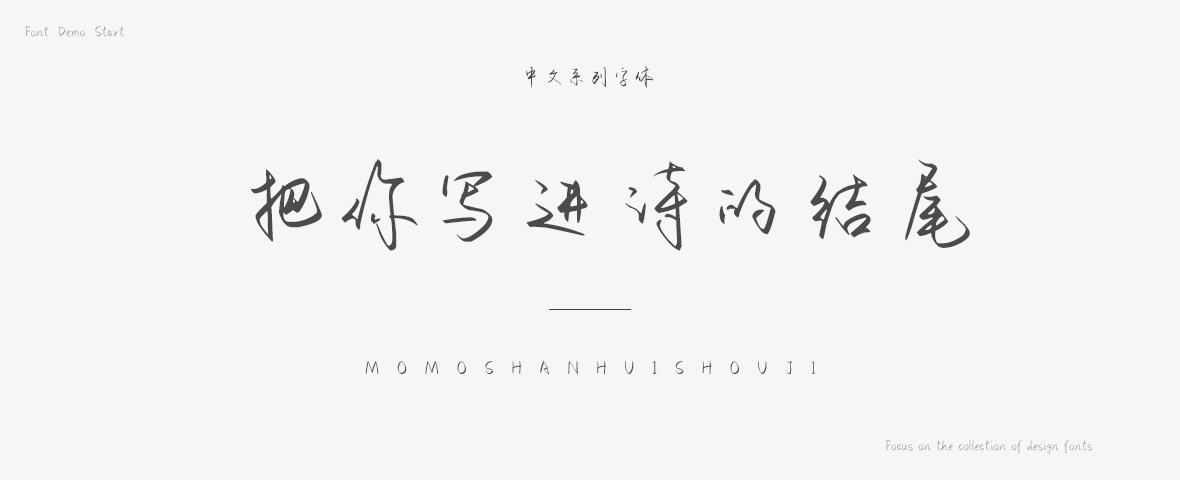 Font Demo Start
中文系列字体
把你写进诗的结尾
MOMOSHANHUISHOUJI
Focus on the collection of design fonts